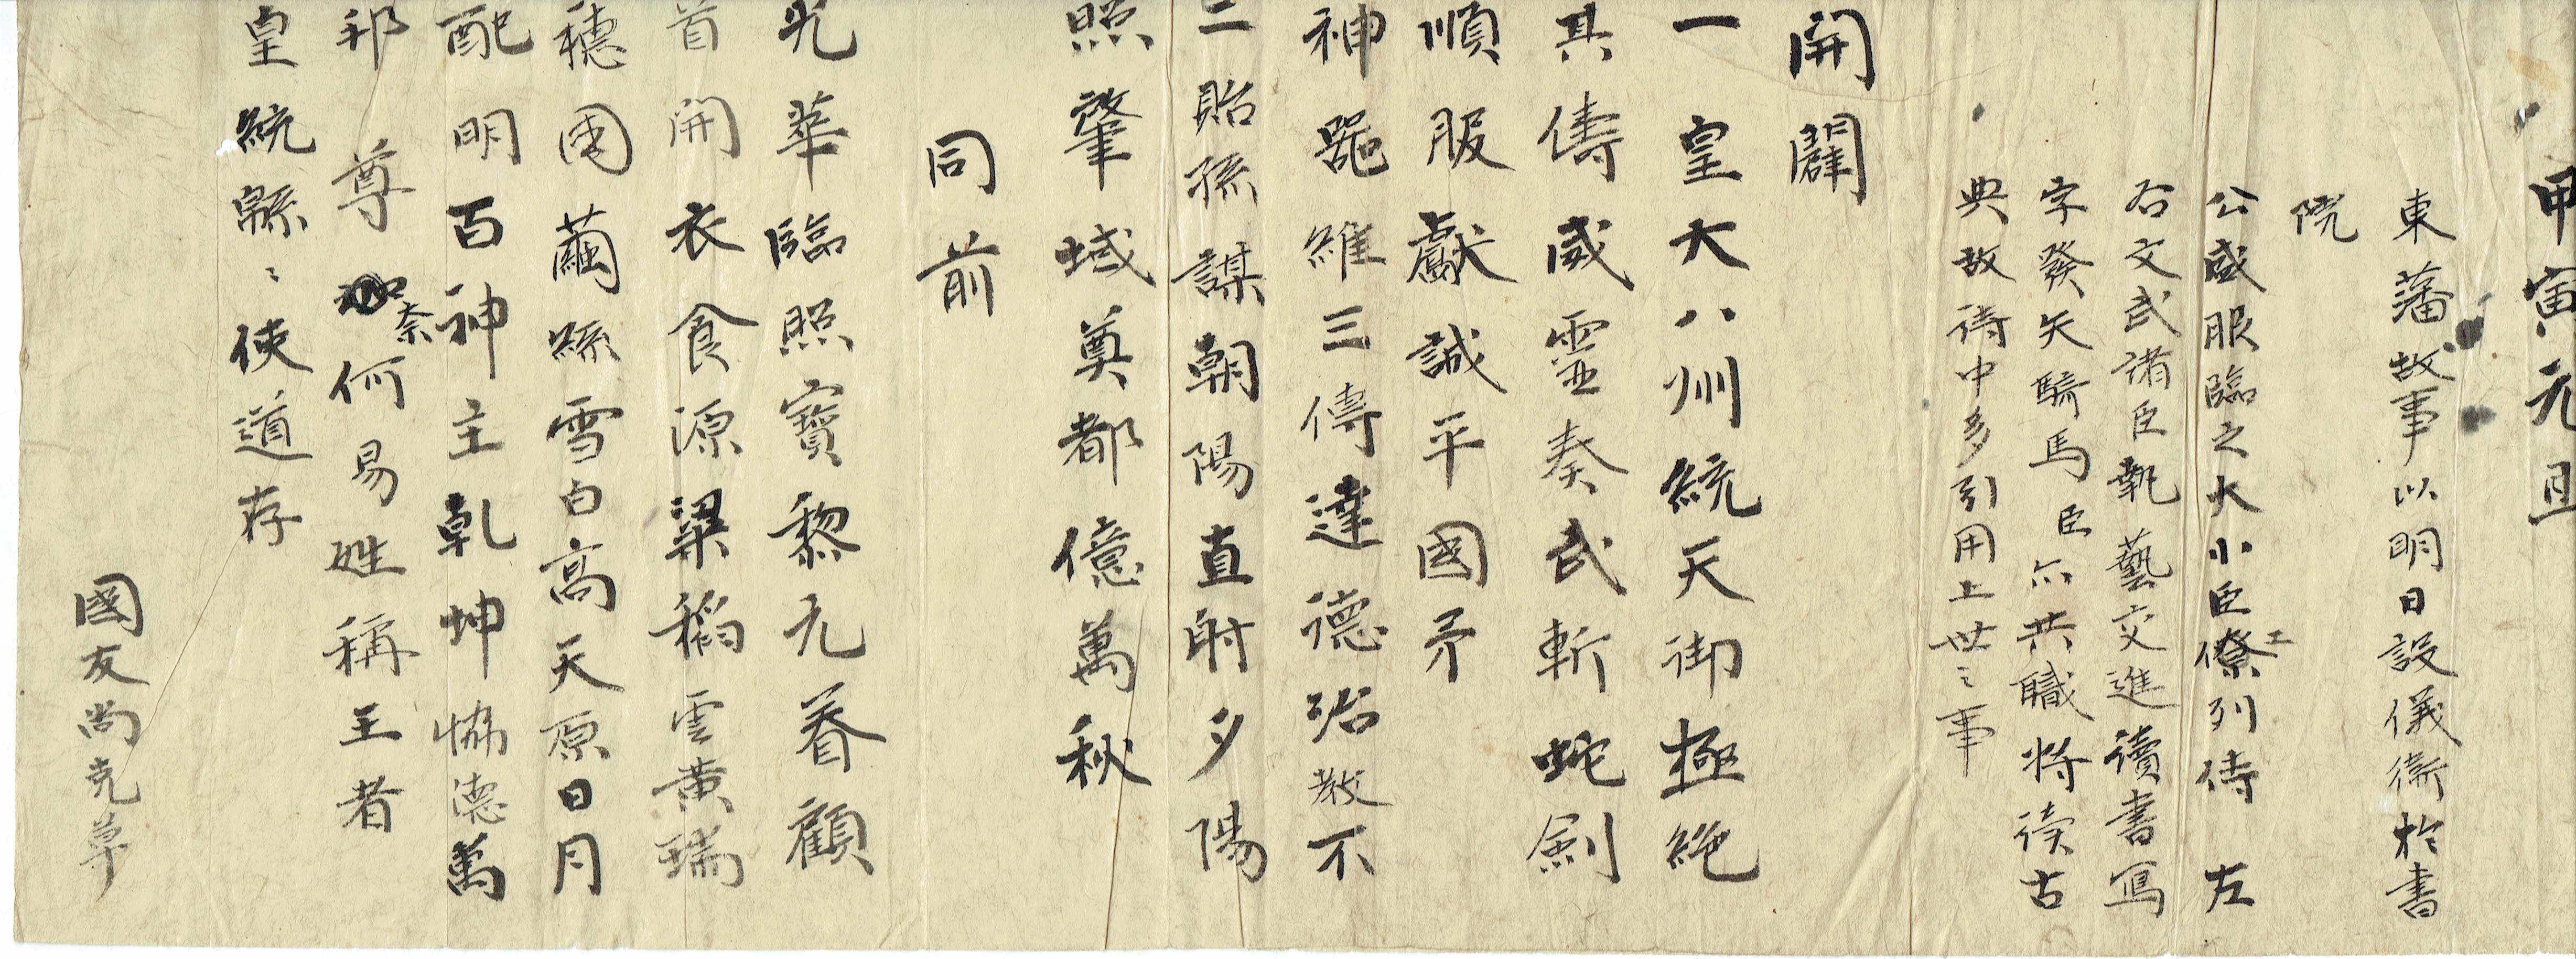 甲寅元旦
東藩故事以明日設儀衞於書
院
公盛服臨之大小臣僚列侍左
右文武諸臣執藝交進讀書寫
字發矢騎馬臣亦共職將讀古
典故詩中多引用上世〻事
開闢
一皇大八州統天御極絶
其儔威靈奏武斬蛇劍
順服獻誠平國矛
神器維三傳達德治教不
二貽孫謀朝陽直射夕陽
照肇域奠都億萬秋
同前
光華臨照寶黎元眷顧
首開衣食源粱稻雲黄瑞
穗國繭絲雪白高天原日月
配明百神主乾坤協德萬
邦尊奈何易姓稱王者
皇統緜〻使道存
國友尚克草